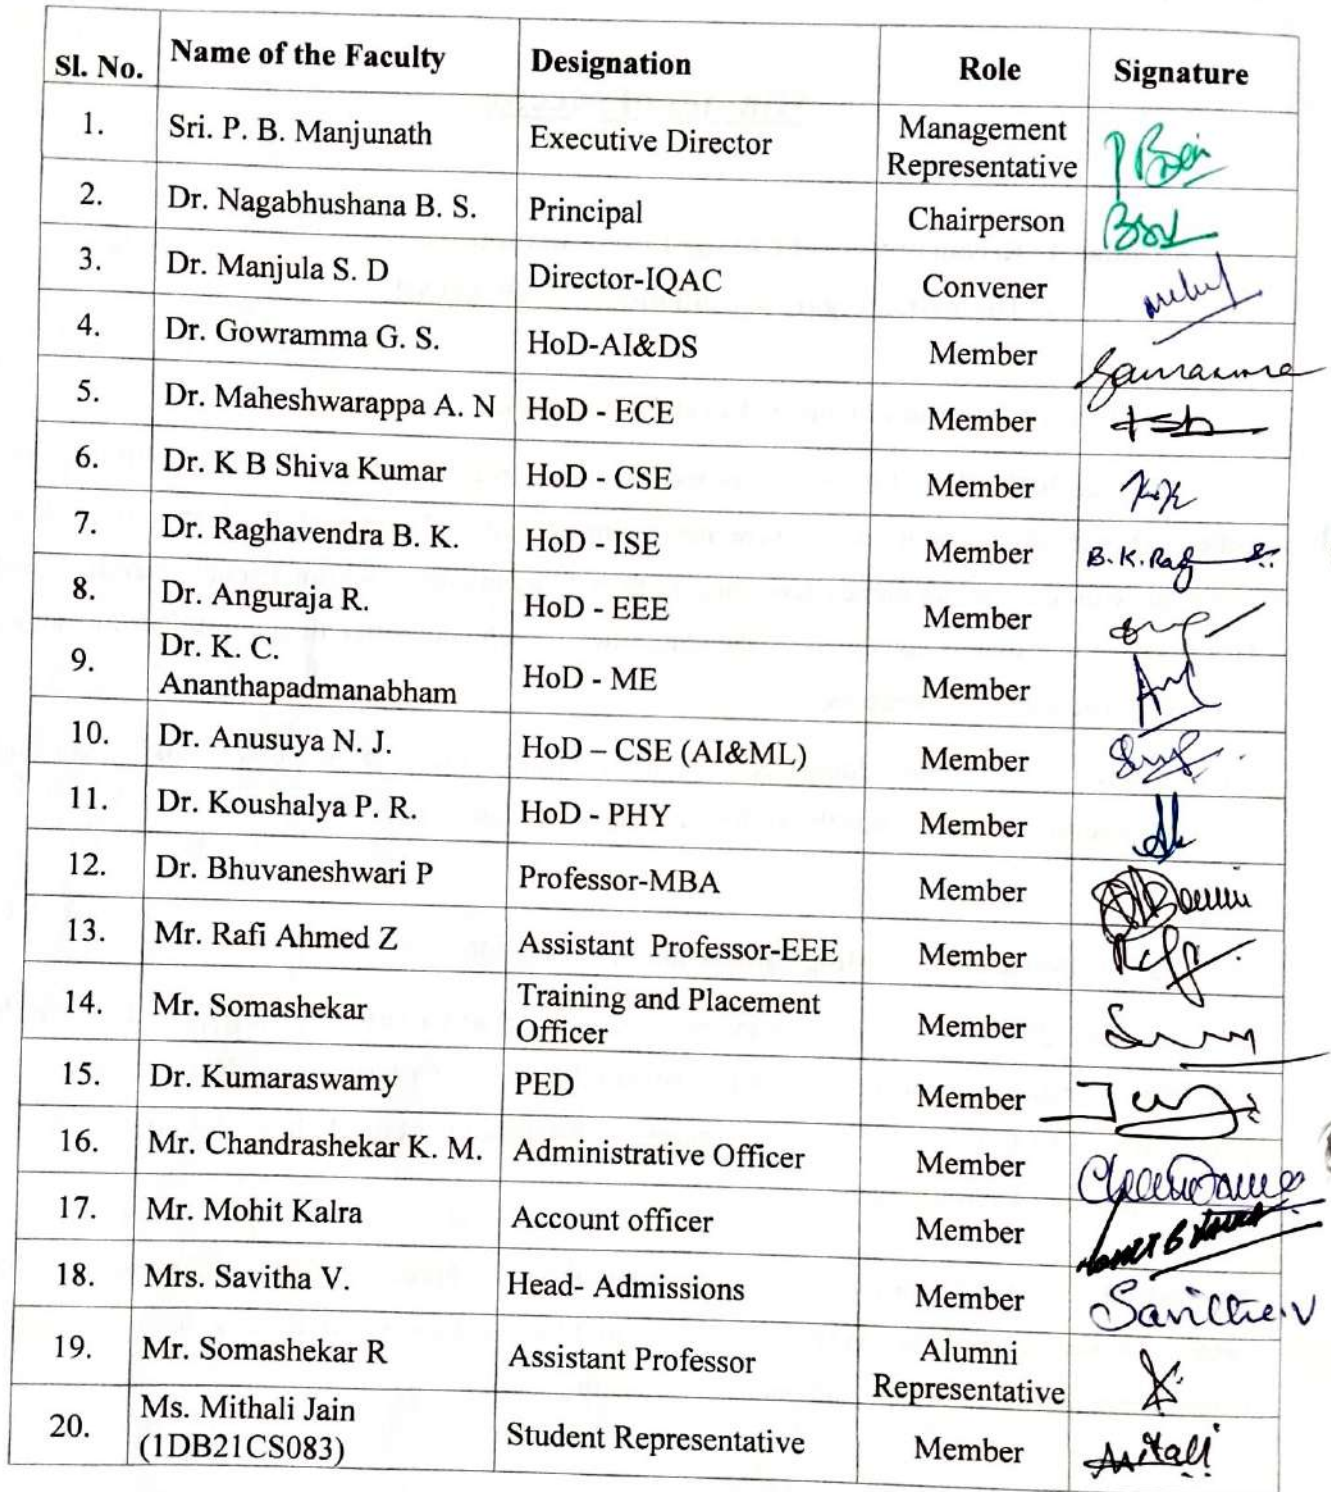 Sl. No. Name of the Faculty Designation Role Signature
1. Sri. P. B. Manjunath Executive Director Management
Representative
2. Dr. Nagabhushana B. S. Principal Chairperson
3. Dr. Manjula S. D Director-IQAC Convener
4. Dr. Gowramma G. S. HoD-AI&DS Member
5. Dr. Maheshwarappa A. N HoD - ECE Member
6. Dr. K B Shiva Kumar HoD - CSE Member
7. Dr. Raghavendra B. K. HoD - ISE Member B.K.Rag
8. Dr. Anguraja R. HoD - EEE Member
9. Dr. K. C.
Ananthapadmanabham HoD - ME Member
10. Dr. Anusuya N. J. HoD – CSE (AI&ML) Member
11. Dr. Koushalya P. R. HoD - PHY Member
12. Dr. Bhuvaneshwari P Professor-MBA Member
13. Mr. Rafi Ahmed Z Assistant Professor-EEE Member
14. Mr. Somashekar Training and Placement
Officer Member
15. Dr. Kumaraswamy PED Member
16. Mr. Chandrashekar K. M. Administrative Officer Member
17. Mr. Mohit Kalra Account officer Member
18. Mrs. Savitha V. Head- Admissions Member Savitha.V
19. Mr. Somashekar R Assistant Professor Alumni
Representative
20. Ms. Mithali Jain
(1DB21CS083) Student Representative Member